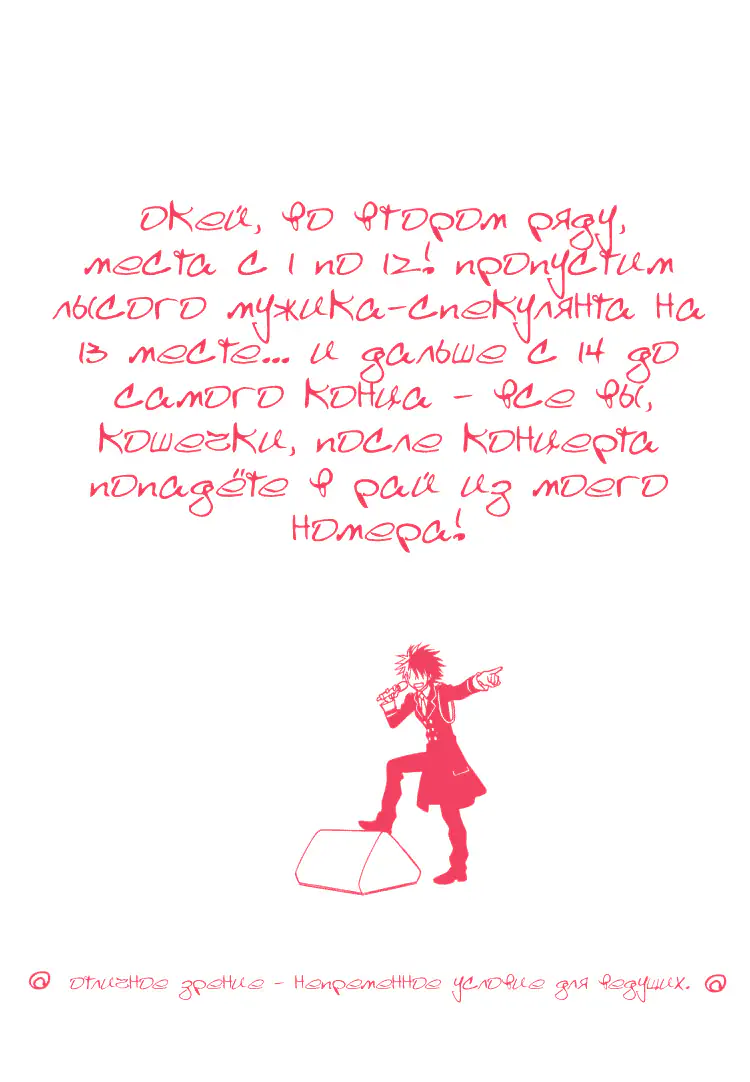 окей, во втором ряду,
места с 1 по 12! пропустим
лысого мужика-спекулянта на
13 месте... и дальше с 14 до
самого конца - все вы,
кошечки, после концерта
попадёте в рай из моего
номера!
@ отличное зрение - непременное условие для ведущих. @